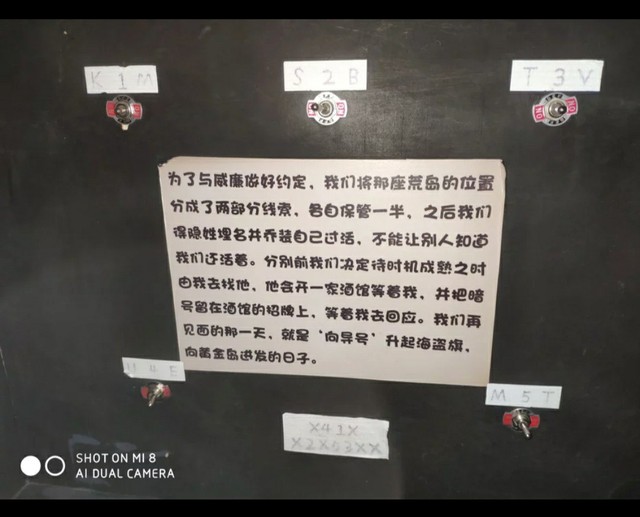 K 1 M
S 2 B
T 3 V
为了与威廉做好约定，我们将那座荒岛的位置
分成了两部分线索，各自保管一半，之后我们
得隐姓埋名并乔装自己过活，不能让别人知道
我们还活着。分别前我们决定待时机成熟之时
由我去找他，他会开一家酒馆等着我，并把暗
号留在酒馆的招牌上，等着我去回应。我们再
见面的那一天，就是‘向异号’升起海盗旗，
向黄金岛进发的日子。
4 E
M 5 T
X41X
SHOT ON MI 8
AI DUAL CAMERA